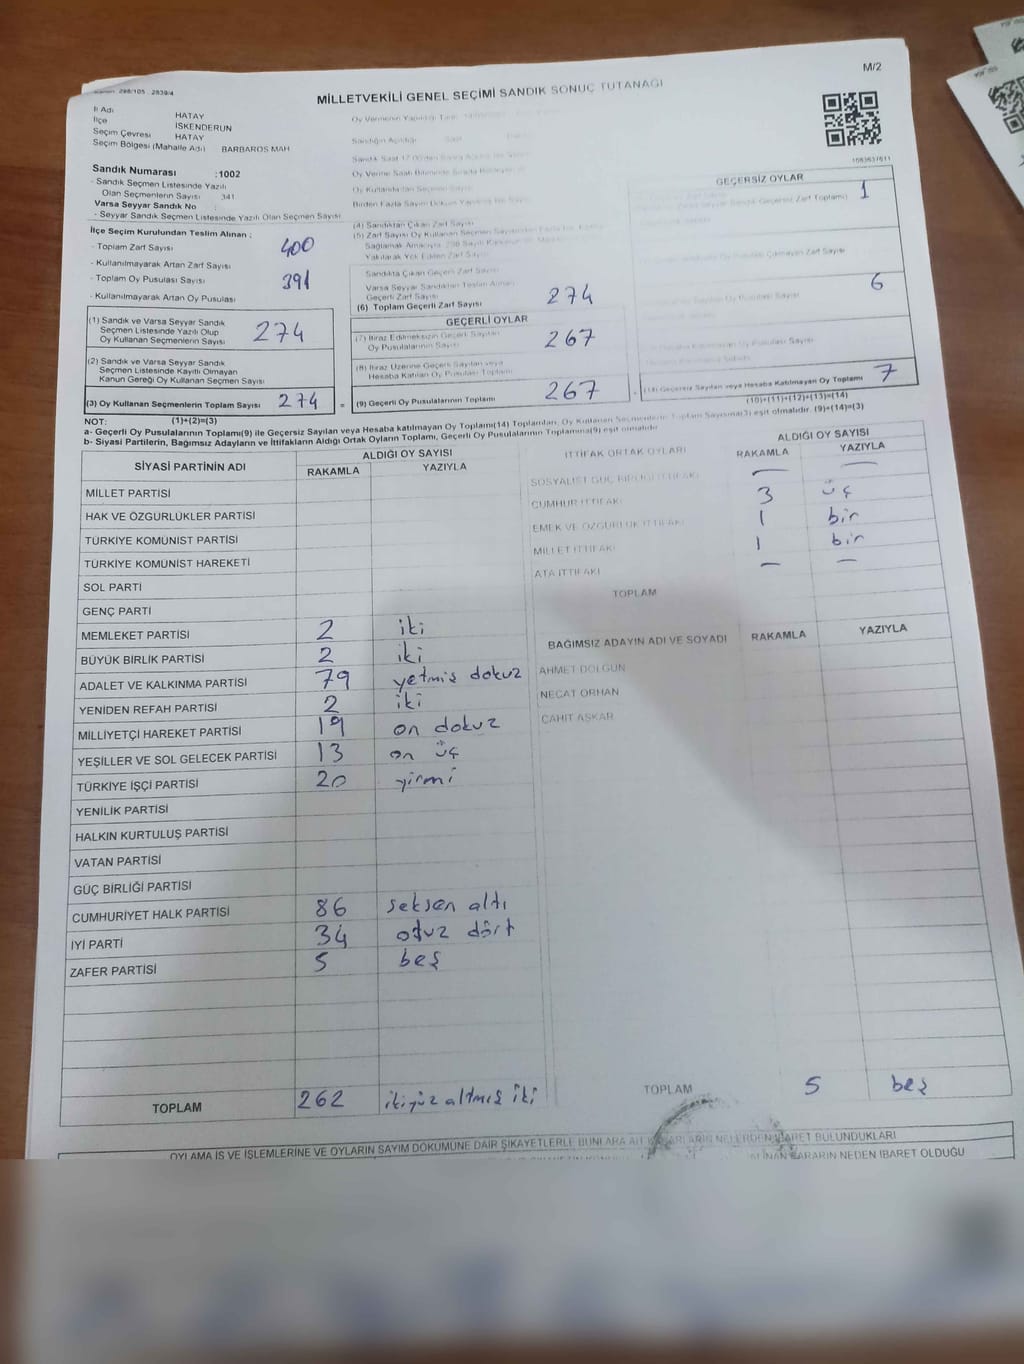 M/2
MİLLETVEKİLİ GENEL SEÇİMİ SANDIK SONUÇ TUTANAĞI
İl Adı HATAY
İlçe İSKENDERUN
Seçim Çevresi HATAY
Seçim Bölgesi (Mahalle Adı) BARBAROS MAH
Sandık Numarası :1002
- Sandık Seçmen Listesinde Yazılı
Olan Seçmenlerin Sayısı 341
Varsa Seyyar Sandık No :
- Seyyar Sandık Seçmen Listesinde Yazılı Olan Seçmen Sayısı
İlçe Seçim Kurulundan Teslim Alınan :
- Toplam Zarf Sayısı 400
- Kullanılmayarak Artan Zarf Sayısı
- Toplam Oy Pusulası Sayısı 391
- Kullanılmayarak Artan Oy Pusulası
(1) Sandık ve Varsa Seyyar Sandık
Seçmen Listesinde Yazılı Olup
Oy Kullanan Seçmenlerin Sayısı 274
(2) Sandık ve Varsa Seyyar Sandık
Seçmen Listesinde Kayıtlı Olmayan
Kanun Gereği Oy Kullanan Seçmen Sayısı
(3) Oy Kullanan Seçmenlerin Toplam Sayısı 274 =
(4) Sandıktan Çıkan Zarf Sayısı
Sandıkta Çıkan Geçerli Zarf Sayısı
Varsa Seyyar Sandıktan Teslim Alınan
Geçerli Zarf Sayısı
(6) Toplam Geçerli Zarf Sayısı 274
GEÇERLİ OYLAR
(7) İtiraz Edilmeksizin Geçerli Sayılan
Oy Pusulalarının Sayısı 267
(8) İtiraz Üzerine Geçerli Sayılan veya
Hesaba Katılan Oy Pusulası Toplamı
(9) Geçerli Oy Pusulalarının Toplamı 267
1083637611
GEÇERSİZ OYLAR
1
6
(14) Geçersiz Sayılan veya Hesaba Katılmayan Oy Toplamı 7
(10)+(11)+(12)+(13)=(14)
NOT: (1)+(2)=(3)
a- Geçerli Oy Pusulalarının Toplamı(9) ile Geçersiz Sayılan veya Hesaba katılmayan Oy Toplamı(14) Toplamları, Oy Kullanan Seçmenlerin Toplam Sayısına(3) eşit olmalıdır. (9)+(14)=(3)
b- Siyasi Partilerin, Bağımsız Adayların ve İttifakların Aldığı Ortak Oyların Toplamı, Geçerli Oy Pusulalarının Toplamına(9) eşit olmalıdır
SİYASİ PARTİNİN ADI ALDIĞI OY SAYISI
RAKAMLA YAZIYLA
MİLLET PARTİSİ
HAK VE ÖZGÜRLÜKLER PARTİSİ
TÜRKİYE KOMÜNİST PARTİSİ
TÜRKİYE KOMÜNİST HAREKETİ
SOL PARTİ
GENÇ PARTİ
MEMLEKET PARTİSİ 2 iki
BÜYÜK BİRLİK PARTİSİ 2 iki
ADALET VE KALKINMA PARTİSİ 79 yetmiş dokuz
YENİDEN REFAH PARTİSİ 2 iki
MİLLİYETÇİ HAREKET PARTİSİ 19 on dokuz
YEŞİLLER VE SOL GELECEK PARTİSİ 13 on üç
TÜRKİYE İŞÇİ PARTİSİ 20 yirmi
YENİLİK PARTİSİ
HALKIN KURTULUŞ PARTİSİ
VATAN PARTİSİ
GÜÇ BİRLİĞİ PARTİSİ
CUMHURİYET HALK PARTİSİ 86 seksen altı
İYİ PARTİ 34 otuz dört
ZAFER PARTİSİ 5 beş
TOPLAM 262 ikiyüz altmış iki
İTTİFAK ORTAK OYLARI ALDIĞI OY SAYISI
RAKAMLA YAZIYLA
SOSYALİST GÜÇ BİRLİĞİ İTTİFAKI — —
CUMHUR İTTİFAKI 3 üç
EMEK VE ÖZGÜRLÜK İTTİFAKI 1 bir
MİLLET İTTİFAKI 1 bir
ATA İTTİFAKI — —
TOPLAM
BAĞIMSIZ ADAYIN ADI VE SOYADI RAKAMLA YAZIYLA
AHMET DOLGUN
NECAT ORHAN
CAHİT AŞKAR
TOPLAM 5 beş
OYLAMA İŞ VE İŞLEMLERİNE VE OYLARIN SAYIM DÖKÜMÜNE DAİR ŞİKAYETLERLE BUNLARA AİT KARARLARIN NELERDEN İBARET BULUNDUKLARI
ALINAN KARARIN NEDEN İBARET OLDUĞU